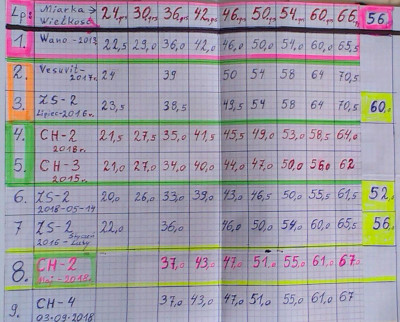 Lp. Miarka → 24 30 36 42 46 50 54 60 66 56.
Wielkość
1. Wano - 2013 22,5 29,0 36,0 42,0 46,0 50,0 54,0 60,0 65,5
2. Vesuvit - 24 39 50 54 58 64 70,5
2017r.
3. ZS-2 23,5 38,5 49,5 54 58 64 70,5 60.
Lipiec-2016r.
4. CH-2 21,5 27,5 35,0 41,5 45,5 49,0 53,0 58,5 64,0
2018r.
5. CH-3 21,0 27,0 34,0 40,0 44,0 47,0 50,0 56,0 62
2015r.
6. ZS-2 20,0 26,0 33,0 39,0 43,0 46,5 50,0 55,0 61,5 52.
2018-05-14
7 ZS-2 22,0 36,0 46,0 50,0 54,0 60,0 65,5 56.
2016 - Luty
8. CH-2 37,0 43,0 47,0 51,0 55,0 61,0 67,5
Maj-2018.
9. CH-4 37,0 43,0 47,0 51,0 55,0 61,0 67
03-09-2018.